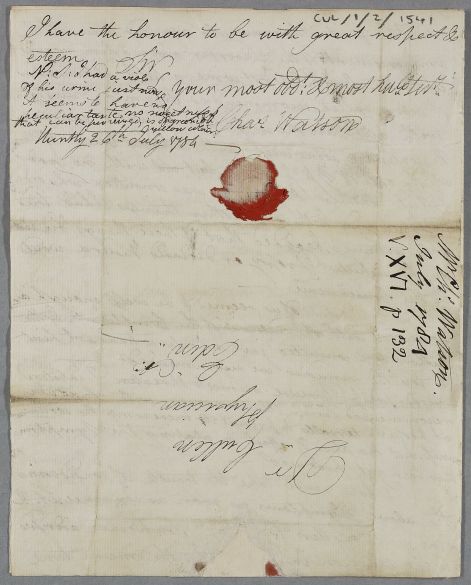 CUL/1/2/1541
I have the honour to be with great respect &
esteem
Sir
your most obdt. & most hule. Servt.
Chas. Watson
N: S: I had a viol
of his urine just now,
It seems to have no
no sweet
that can be perceived, is
yellow colour
Huntly 26th July 1784
Mr. Ch: Watson.
July 1784
V. XVI. p 132
Dr
Cullen
Physician
Edinr.